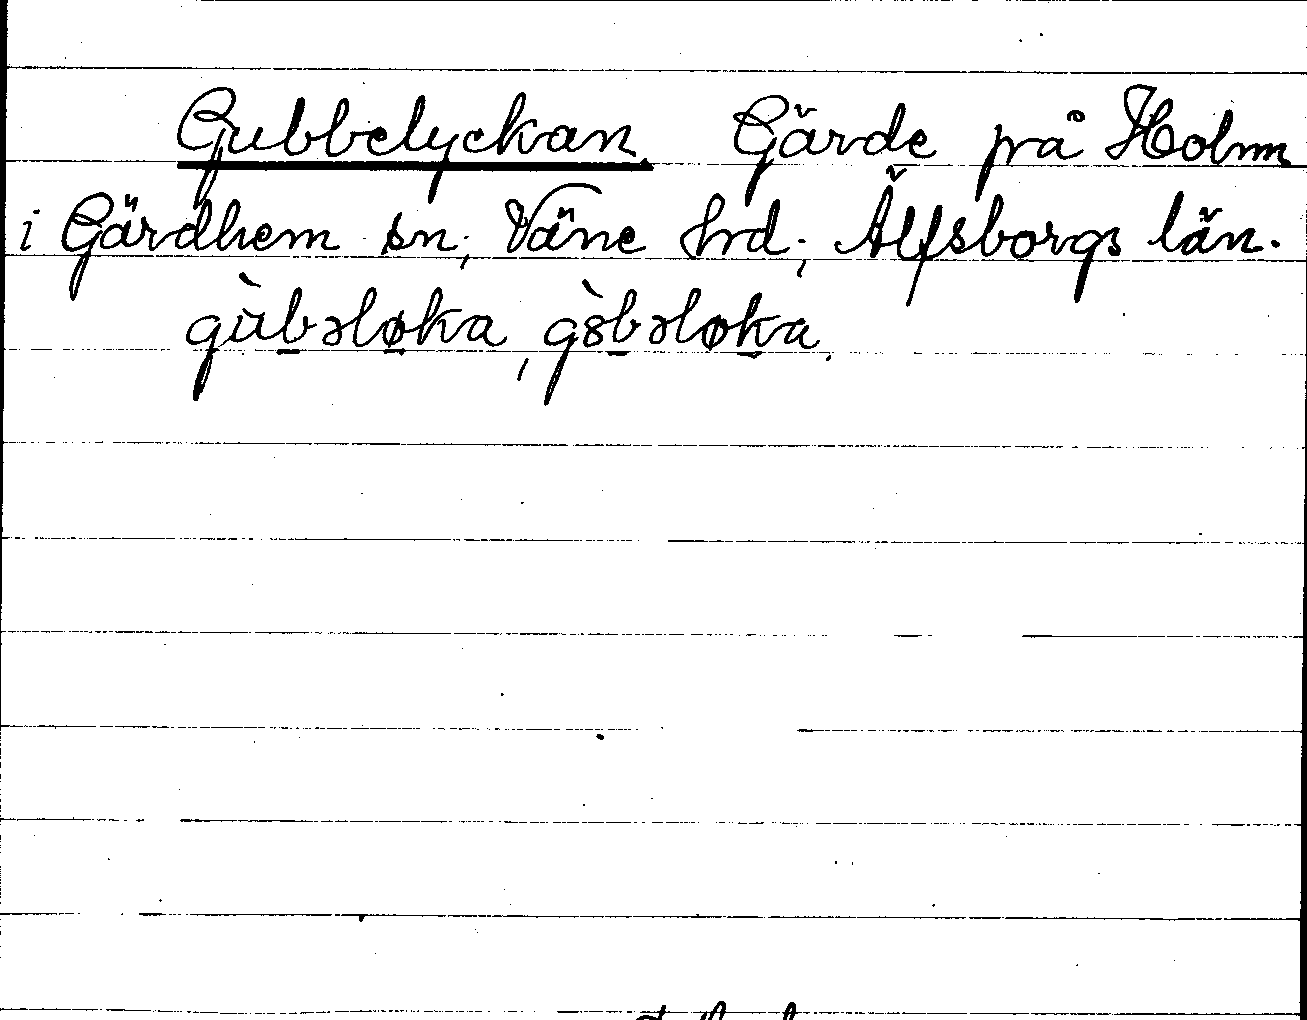 Gubbelyckan. Gärde på Holmm
i Gärdhem sn, Väne hrd, Älfsborgs län.
gùbəløka, gòbəløka.